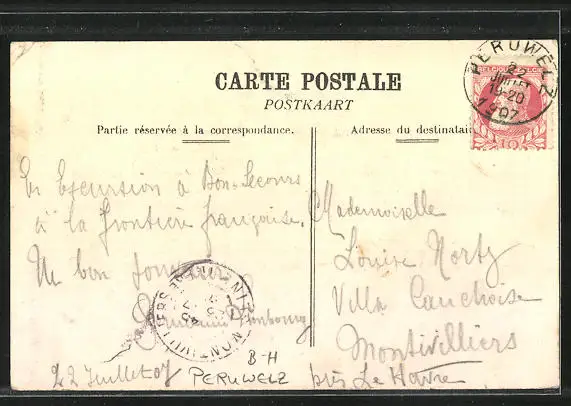 CARTE POSTALE
POSTKAART
Partie réservée à la correspondance.
Adresse du destinatai
PERUWELZ
22
JUILLET
19-20
1907
10
En Excursion à Bon-Secours
à la frontière française.
Un bon souvenir
22 Juillet 07
B-H
PERUWELZ
Mademoiselle
Louise Norty
Villa Cauchoise
Montivilliers
près Le Havre